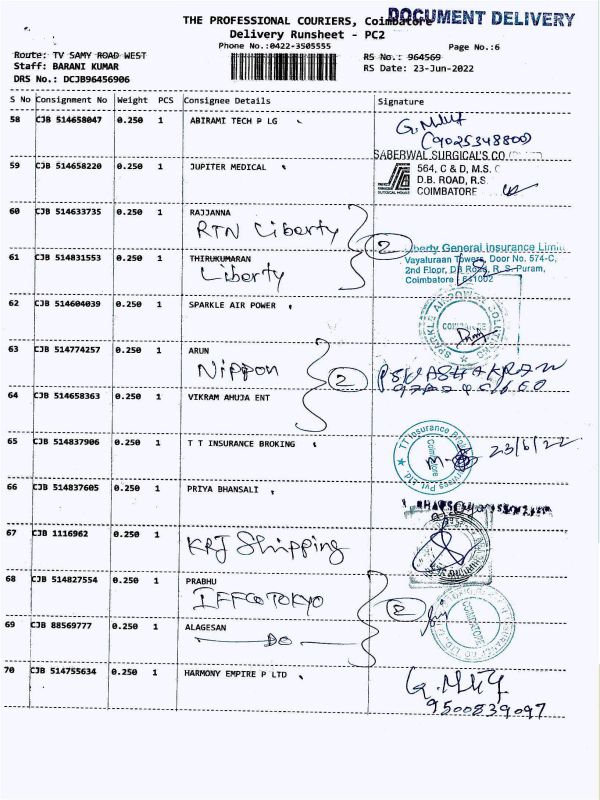 THE PROFESSIONAL COURIERS, Coimbatore
DOCUMENT DELIVERY
Delivery Runsheet - PC2
Phone No.:0422-3505555
Page No.:6
Route: TV SAMY ROAD WEST
RS No.: 964569
Staff: BARANI KUMAR
RS Date: 23-Jun-2022
DRS No.: DCJB96456906
S No Consignment No Weight PCS Consignee Details Signature
58 CJB 514658047 0.250 1 ABIRAMI TECH P LG
(9025348800)
SABERWAL SURGICAL'S CO
59 CJB 514658220 0.250 1 JUPITER MEDICAL
564, C & D, M.S.
D.B. ROAD, R.S.
COIMBATORE
60 CJB 514633735 0.250 1 RAJJANNA
RTN Liberty
2
Liberty General Insurance Limi
61 CJB 514831553 0.250 1 THIRUKUMARAN
Liberty
Vayaluraan Towers, Door No. 574-C,
2nd Floor, DB Road, R. S. Puram,
Coimbatore 641002
62 CJB 514604039 0.250 1 SPARKLE AIR POWER
SPARKLE AIR POWER
63 CJB 514774257 0.250 1 ARUN
Nippon
2
64 CJB 514658363 0.250 1 VIKRAM AHUJA ENT
65 CJB 514837906 0.250 1 T T INSURANCE BROKING
TT Insurance Broking Services Pvt. Ltd.
Coimbatore
23/6/22
66 CJB 514837605 0.250 1 PRIYA BHANSALI
67 CJB 1116962 0.250 1
KRJ Shipping
68 CJB 514827554 0.250 1 PRABHU
IFFCO TOKYO
2
COIMBATORE
69 CJB 88569777 0.250 1 ALAGESAN
DO
70 CJB 514755634 0.250 1 HARMONY EMPIRE P LTD
9500839097